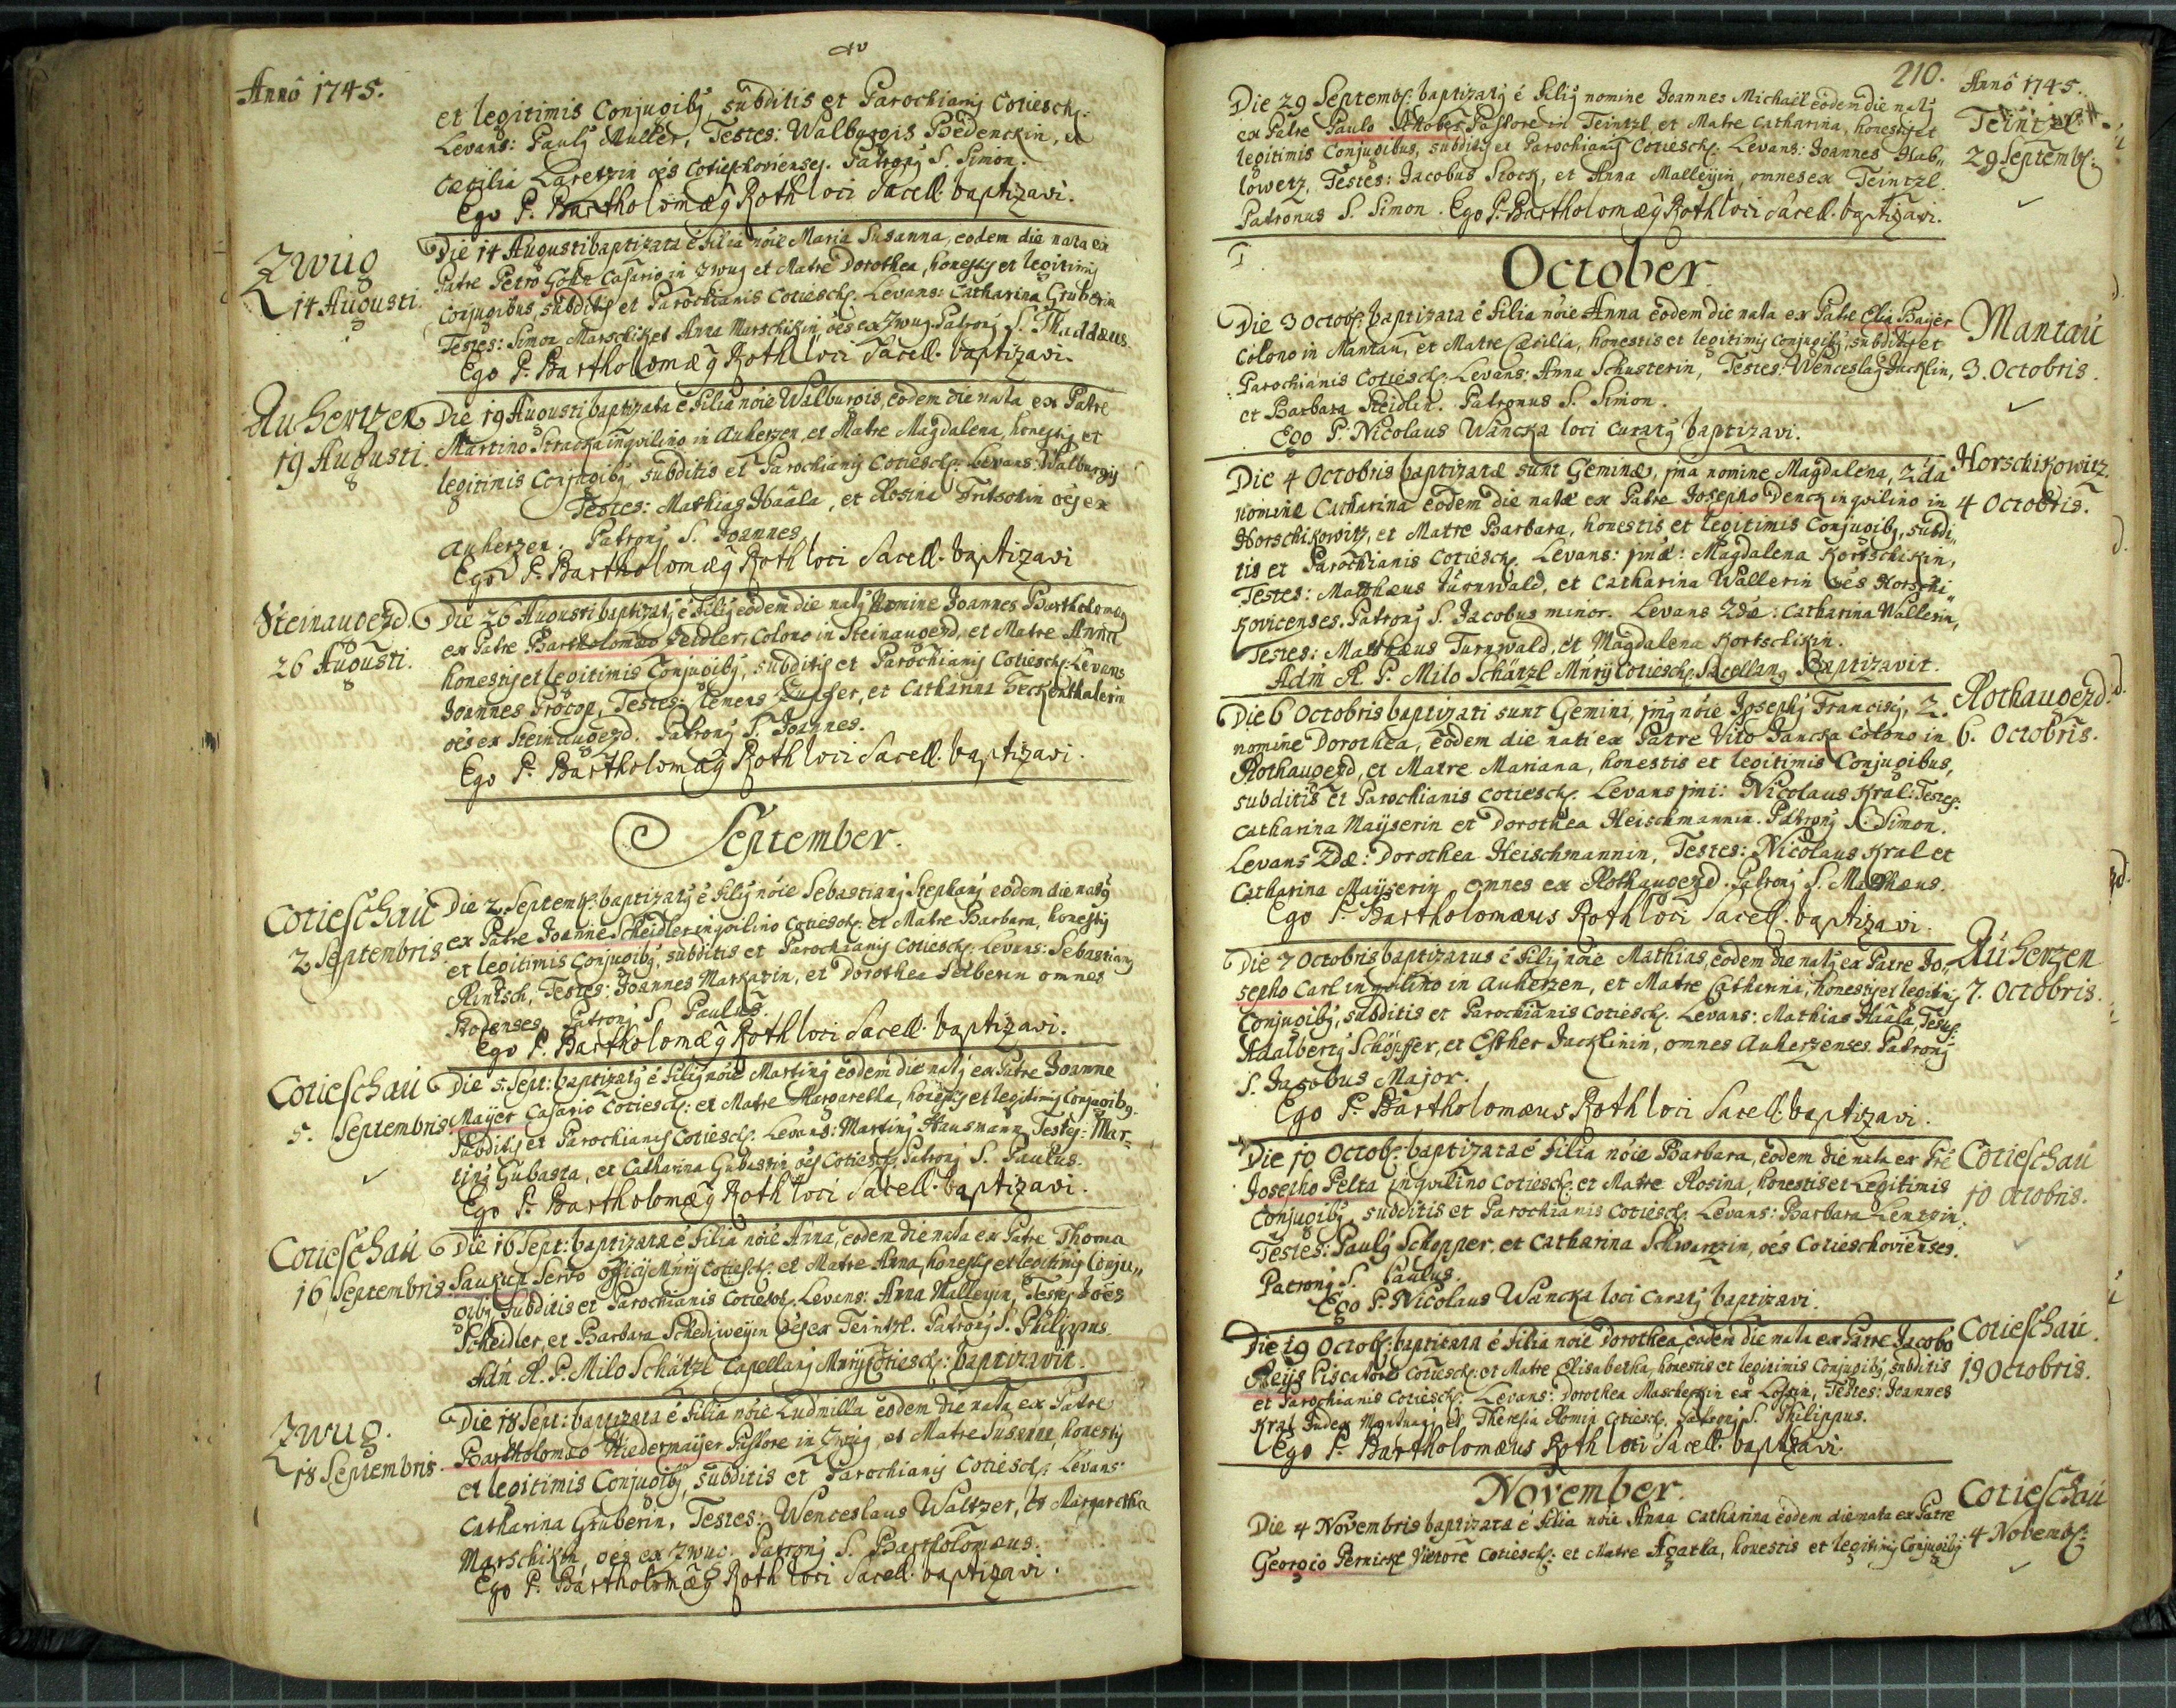 Annô 1745.
et legitimis Conjugibꝫ, subditis et Parochianis Cotiesch:
Levans: Paulꝫ Muller, Testes: Walburgis Bedenckin, et
Cæcilia Laretzin oēs Cotieschoviensꝫ. Patronꝫ S. Simon.
Ego P. Bartholomæꝫ Roth loci Sacell. baptizavi.
Zwug
14 Augusti.
Die 14 Augusti baptizata ē Filia nōie Maria Susanna, eodem die nata ex
Patre Petro Gohn Casario in Zwug et Matre Dorothea, honestꝫ et legitimꝫ
Conjugibus, subditis et Parochianis Cotiesch: Levans: Catharina Gruberin
Testes: Simon Marschik et Anna Marschikin, oēs ex Zwug. Patronꝫ S. Thaddæus.
Ego P. Bartholomæꝫ Roth loci Sacell. baptizavi.
Auhertzen
19 Augusti.
Die 19 Augusti baptizata ē Filia nōie Walburgis, eodem die nata ex Patre
Martino Stracka inqvilino in Auherzen, et Matre Magdalena, honestꝫ et
legitimis Conjugibꝫ, subditis et Parochianꝫ Cotiesch: Levans: Walburgꝫ
Testes: Mathias Haala, et Rosina oēs ex
Auherzen. Patronꝫ S. Joannes.
Ego P. Bartholomæꝫ Roth loci Sacell. baptizavi
Steinaugezd.
26 Augusti.
Die 26 Augusti baptizatꝫ ē Filiꝫ eodem die natꝫ Nomine Joannes Bartholomæꝫ
ex Patre Bartholomæo Zeidler, Colono in Steinaugezd, et Matre Anna
honestꝫ et legitimis Conjugibꝫ, subditis et Parochianꝫ Cotiesch: Levans
Joannes Procop, Testes: Clemens et Catharina Beckenthalerin
oēs ex Steinaugezd. Patronꝫ S. Joannes.
Ego P. Bartholomæꝫ Roth loci Sacell. baptizavi.
September.
Cotieschau
2 Septembris.
Die 2 Septemb: baptizatꝫ ē Filiꝫ nōie Sebastianꝫ Stephanꝫ eodem die natꝫ
ex Patre Joanne Scheidler inqvilino Cotiesch: et Matre Barbara, honestꝫ
et legitimis Conjugibꝫ, subditis et Parochianꝫ Cotiesch: Levans: Sebastianꝫ
Rintsch, Testes: Joannes Markatin, et Dorothea Selberin omnes
Patronꝫ S. Paulus.
Ego P. Bartholomæꝫ Roth loci Sacell. baptizavi.
Cotieschau
5. Septembris.
Die 5. Sept: baptizatꝫ ē Filiꝫ nōie Martinꝫ eodem die natꝫ ex Patre Joanne
Maÿer Casario Cotiesch: et Matre Margaretha, honestꝫ et legitimꝫ Conjugibꝫ,
subditꝫ et Parochianꝫ Cotiesch: Levans: Martinꝫ Hausmann, Testes: Mar-
tinꝫ Gubasta, et Catharina Gubastin oēs Cotiesch: Patronꝫ S. Paulus.
Ego P. Bartholomæꝫ Roth loci Sacell. baptizavi.
Cotieschau
16 Septembris.
Die 16 Sept: baptizata ē Filia nōie Anna, eodem die nata ex Patre Thoma
Saukup Servo Officiꝫ Mnrÿ Cotiesch: et Matre Anna, honestꝫ et legitimꝫ Conju„
gibꝫ, subditis et Parochianis Cotiesch: Levans: Anna Malleÿin, Testes: Joēs
Scheidler, et Barbara Schediweÿin oēs ex Teintzl. Patronꝫ S. Philippus.
Adm R. P. Milo Schätzl Capellanꝫ Mnrÿ Cotiesch: baptizavit.
Zwug.
18 Septembris.
Die 18 Sept: baptizata ē Filia nōie Ludmilla eodem die nata ex Patre
Bartholomæo Niedermaÿer Pastore in Zwug, et Matre Susanna, honestꝫ
et legitimis Conjugibꝫ, subditis et Parochianꝫ Cotiesch: Levans:
Catharina Gruberin, Testes: Wenceslaus Waltzer, et Margaretha
Marschikin oēs ex Zwug. Patronꝫ S. Bartholomæus.
Ego P. Bartholomæꝫ Roth loci Sacell. baptizavi.
210.
Annô 1745.
Teintzl
29 Septemb:
Die 29 Septemb: baptizatꝫ ē Filiꝫ nomine Joannes Michaël eodem die natꝫ
ex Patre Paulo Schober Pastore in Teintzl, et Matre Catharina, honestꝫ et
legitimis Conjugibus, subditꝫ et Parochianꝫ Cotiesch: Levans: Joannes Hab„
lowetz, Testes: Jacobus Stock, et Anna Malleÿin, omnes ex Teintzl.
Patronus S. Simon. Ego P. Bartholomæꝫ Roth loci Sacell. baptizavi.
October.
Mantau
3. Octobris.
Die 3 Octob: baptizata ē Filia nōie Anna eodem die nata ex Patre Elia Baÿer
Colono in Mantau, et Matre Cæcilia, honestis et legitimꝫ Conjugibꝫ, subditꝫ et
Parochianis Cotiesch: Levans: Anna Schusterin, Testes: Wenceslaꝫ Jucklin,
et Barbara Steidlin. Patronus S. Simon.
Ego P. Nicolaus Wancka loci Curatꝫ baptizavi.
Horschikowitz.
4 Octobris.
Die 4 Octobris baptizatæ sunt Geminæ, pma nomine Magdalena, 2da
nomine Catharina eodem die natæ ex Patre Josepho Denck inqvilino in
Horschikowitz, et Matre Barbara, honestis et legitimis Conjugibꝫ, subdi„
tis et Parochianis Cotiesch: Levans: pmæ: Magdalena Kortschikin,
Testes: Matthæus Turnwald, et Catharina Wallerin oēs Horschi„
kovicenses. Patronꝫ S. Jacobus minor. Levans 2dæ: Catharina Wallerin,
Testes: Matthæus Turnwald, et Magdalena Kortschikin.
Adm R. P. Milo Schätzl Mnrÿ Cotiesch: Sacellanꝫ Baptizavit.
Rothaugezd.
6. Octobris.
Die 6 Octobris baptizati sunt Gemini, pmꝫ nōie Josephꝫ Franciscꝫ, 2.
nomine Dorothea, eodem die nati ex Patre Vito Jancka Colono in
Rothaugezd, et Matre Mariana, honestis et legitimis Conjugibus,
subditis et Parochianis Cotiesch: Levans pmi: Nicolaus Kral: Testes:
Catharina Maÿserin et Dorothea Heischmannin. Patronꝫ S. Simon.
Levans 2dæ: Dorothea Heischmannin, Testes: Nicolaus Kral et
Catharina Maÿserin omnes ex Rothaugezd. Patronꝫ S. Matthæus.
Ego P. Bartholomæus Roth loci Sacell. baptizavi.
Auherzen
7. Octobris.
Die 7 Octobris baptizatus ē Filiꝫ nōie Mathias, eodem die natꝫ ex Patre Jo„
sepho Carl inqvilino in Auherzen, et Matre Catharina, honestꝫ et legitimꝫ
Conjugibꝫ, subditis et Parochianis Cotiesch: Levans: Mathias Haala, Testes:
Adalbertꝫ Schöpffer, et Esther Jucklinin, omnes Auherzenses. Patronꝫ
S. Jacobus Major.
Ego P. Bartholomæus Roth loci Sacell. baptizavi.
Cotieschau
10 Octobris.
Die 10 Octob: baptizata ē Filia nōie Barbara, eodem die nata ex Pre
Josepho Pelta inqvilino Cotiesch: et Matre Rosina, honestis et Legitimis
Conjugibꝫ, subditis et Parochianis Cotiesch: Levans: Barbara Lentzin,
Testes: Paulꝫ Schopper, et Catharina Schwartzin, oēs Cotieschovienses.
Patronꝫ S. Paulus.
Ego P. Nicolaus Wancka loci Curatꝫ baptizavi.
Cotieschau.
19 Octobris.
Die 19 Octob: baptizata ē Filia nōie Dorothea, eodem die nata ex Patre Jacobo
Reÿs Piscatore Cotiesch: et Matre Elisabetha, honestis et legitimis Conjugibꝫ, subditis
et Parochianis Cotiesch: Levans: Dorothea Mascherkin ex Lossin, Testes: Joannes
Kral Judex et Theresia Romin Cotiesch: Patronꝫ S. Philippus.
Ego P. Bartholomæus Roth loci Sacell. baptizavi.
November.
Cotieschau
4 Novemb:
Die 4 Novembris baptizata ē Filia nōie Anna Catharina eodem die nata ex Patre
Georgio Pernickl Viétore Cotiesch: et Matre Agatha, honestis et legitimꝫ Conjugibꝫ